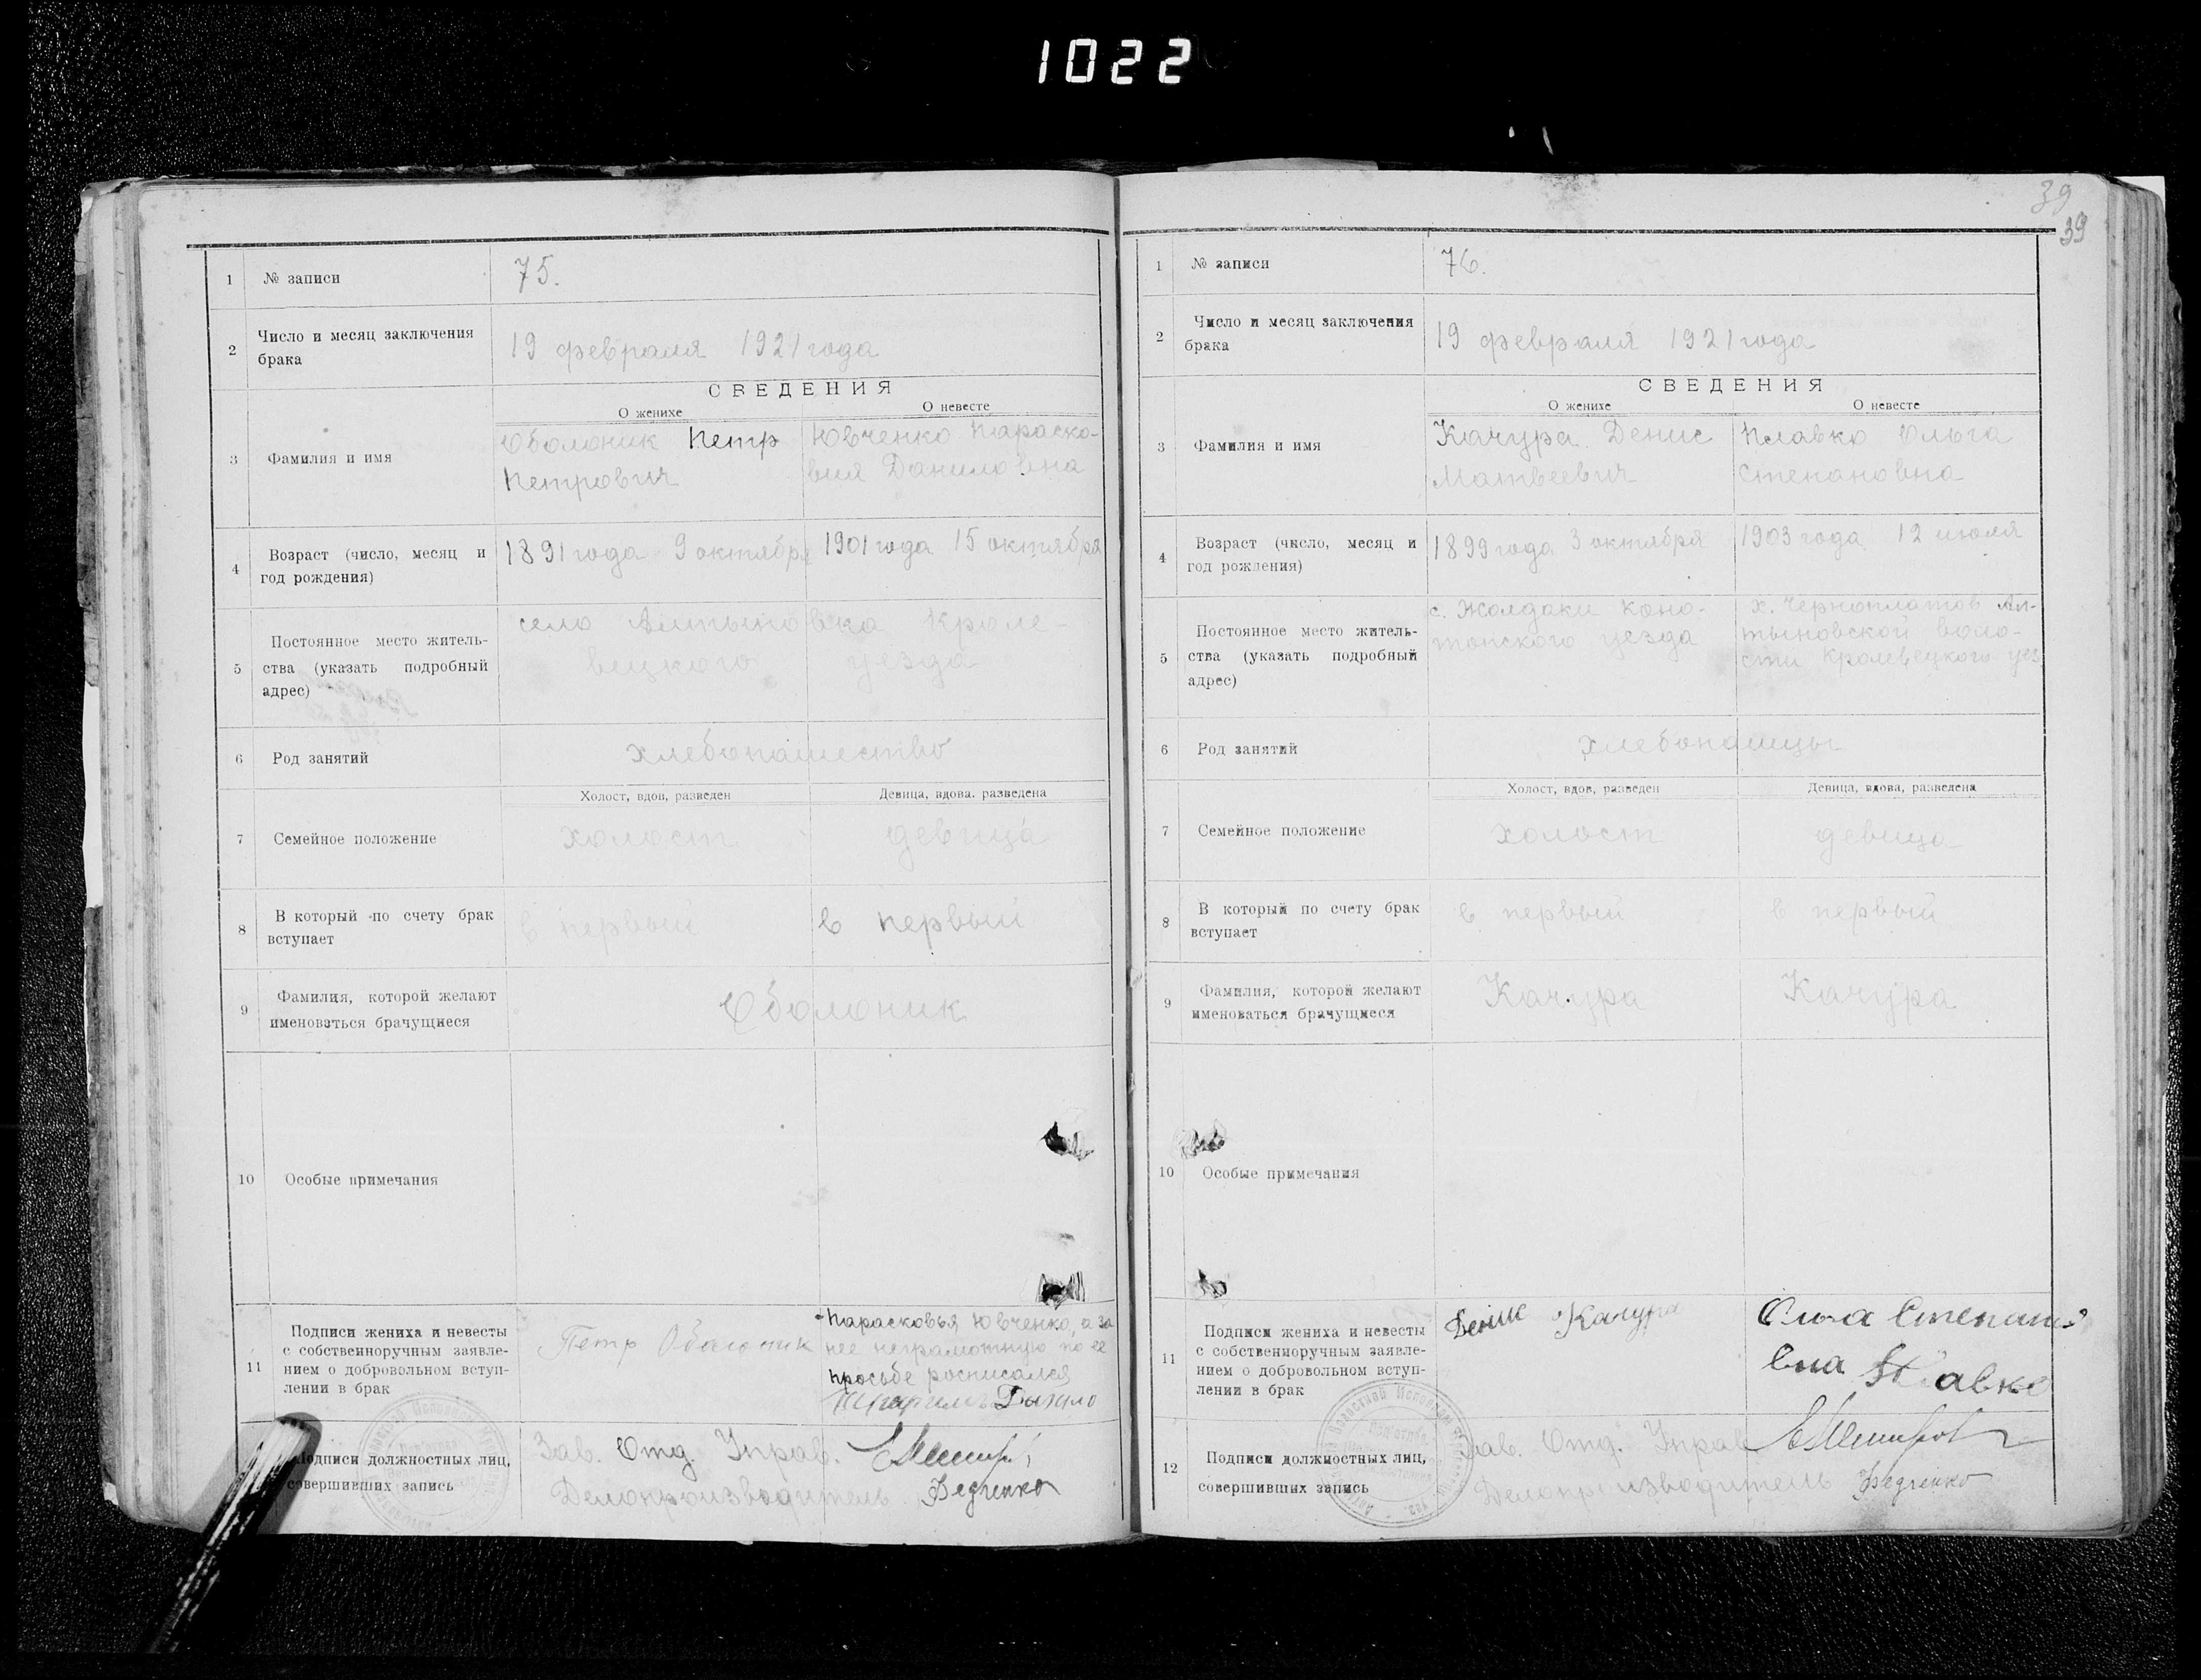 1022
39
39
1 № записи 75.
2 Число и месяц заключения
брака
19 февраля 1921 года
СВЕДЕНИЯ
О женихе О невесте
3 Фамилия и имя
Оболоник Петр
Петрович
Ювченко Параско-
вия Даниловна
4 Возраст (число, месяц и
год рождения)
1891 года 9 октября
1901 года 15 октября
5 Постоянное место житель-
ства (указать подробный
адрес)
село Алтыновка Кроле-
вецкого уезда
6 Род занятий хлебопашество
Холост, вдов, разведен Девица, вдова. разведена
7 Семейное положение холост девица
8 В который по счету брак
вступает
в первый в первый
9 Фамилия, которой желают
именоваться брачущиеся
Оболоник
10 Особые примечания
11 Подписи жениха и невесты
с собственноручным заявле-
нием о добровольном вступ-
лении в брак
Петр Оболоник
Парасковья Ювченко, а за
нее неграмотную по ее
просьбе росписался
Данило
Подписи должностных лиц,
совершивших запись
Зав. Отд. Управ.
Делопроизводитель Федченко
1 № записи 76.
2 Число и месяц заключения
брака
19 февраля 1921 года
СВЕДЕНИЯ
О женихе О невесте
3 Фамилия и имя
Качура Денис
Матвеевич
Плавко Ольга
Степановна
4 Возраст (число, месяц и
год рождения)
1899 года 3 октября
1903 года 12 июля
5 Постоянное место житель-
ства (указать подробный
адрес)
с. Жолдаки коно-
топского уезда
х. Черноплатов Ал-
тыновской воло-
сти Кролевецкого уез
6 Род занятий хлебопашцы
Холост, вдов, разведен Девица, вдова, разведена
7 Семейное положение холост девица
8 В который по счету брак
вступает
в первый в первый
9 Фамилия, которой желают
именоваться брачущиеся
Качура Качура
10 Особые примечания
11 Подписи жениха и невесты
с собственноручным заявле-
нием о добровольном вступ-
лении в брак
Качура
Степан
вна
12 Подписи должностных лиц,
совершивших запись
Зав. Отд. Управ
Делопроизводитель Федченко